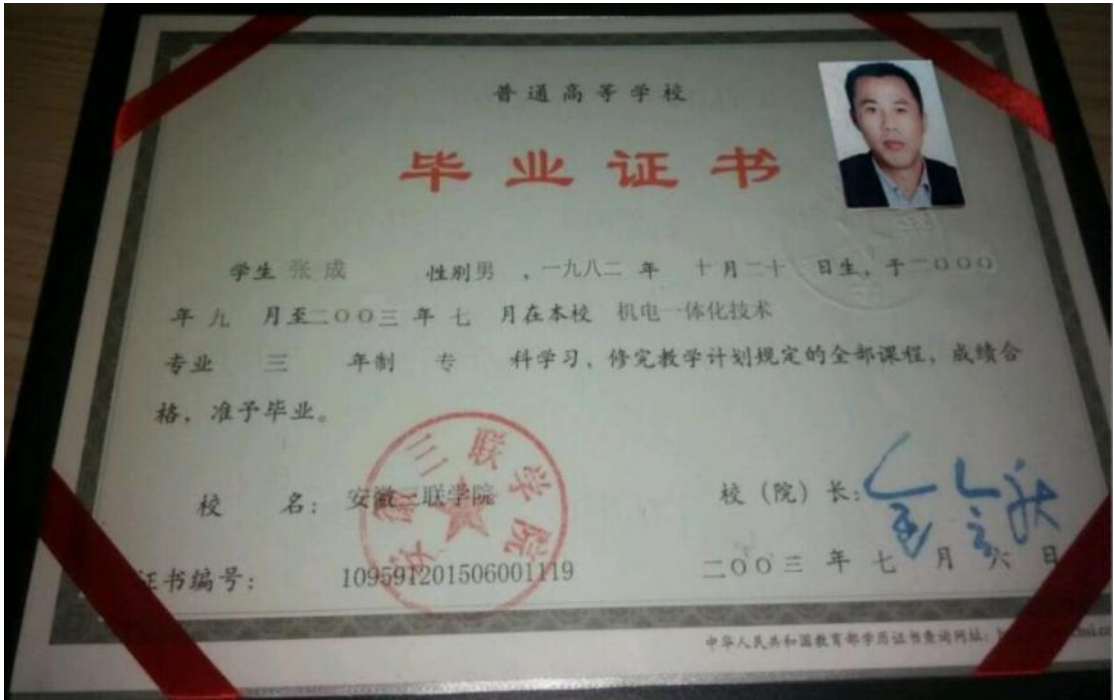 普通高等学校
毕业证书
学生 张成 性别 男 ，一九八二 年 十月二十 日生，于二〇〇〇
年 九 月至二〇〇三 年 七 月在本校 机电一体化技术
专业 三 年制 专 科学习，修完教学计划规定的全部课程，成绩合
格，准予毕业。
校 名： 安徽三联学院
校（院）长：
安徽三联学院
证书编号： 109591201506001119
二〇〇三 年 七 月 六 日
中华人民共和国教育部学历证书查询网址：